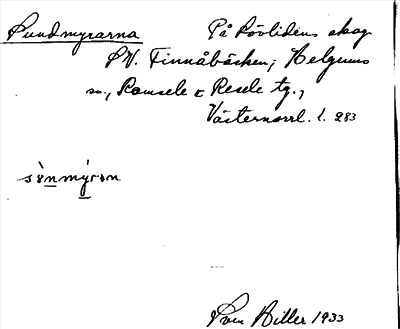 Sundmyrarna På Lövlidens skog
S.V. Finnåbäcken; Helgums
sn., Ramsele & Resele tg.,
Västernorrl. l. 283
sò̀nmýrɑn
Sven Hiller 1933